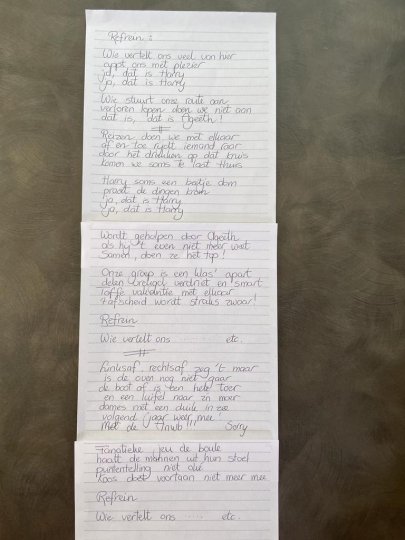 Refrein :
Wie vertelt ons veel van hier
appt ons met plezier
ja, dat is Harry
ja, dat is Harry
Wie stuurt onze route aan
verloren lopen doen we niet aan
dat is, dat is Ageeth!
Reizen doen we met elkaar
af en toe rijdt iemand raar
door het drukken op dat kruis
komen we soms te laat thuis
Harry soms een beetje dom
praat de dingen krom
ja, dat is Harry
ja, dat is Harry
Wordt geholpen door Ageeth
als hij 't even niet meer weet
Samen, doen ze het top!
Onze groep is een klas' apart
delen vreugd, verdriet en smart
toffe vakantie met elkaar
't afscheid wordt straks zwaar!
Refrein
Wie vertelt ons ...... etc.
Linksaf, rechtsaf zeg 't maar
is de oven nog niet gaar
de boot af is een hele toer
en een luifel naar z'n moer
dames met een duik in zee
volgend jaar weer mee!
Met de !!!! Sorry
Fanatieke jeu de boule
haalt de mannen uit hun stoel
puntentelling niet oké
Koos doet voortaan niet meer mee
Refrein
Wie vertelt ons ...... etc.